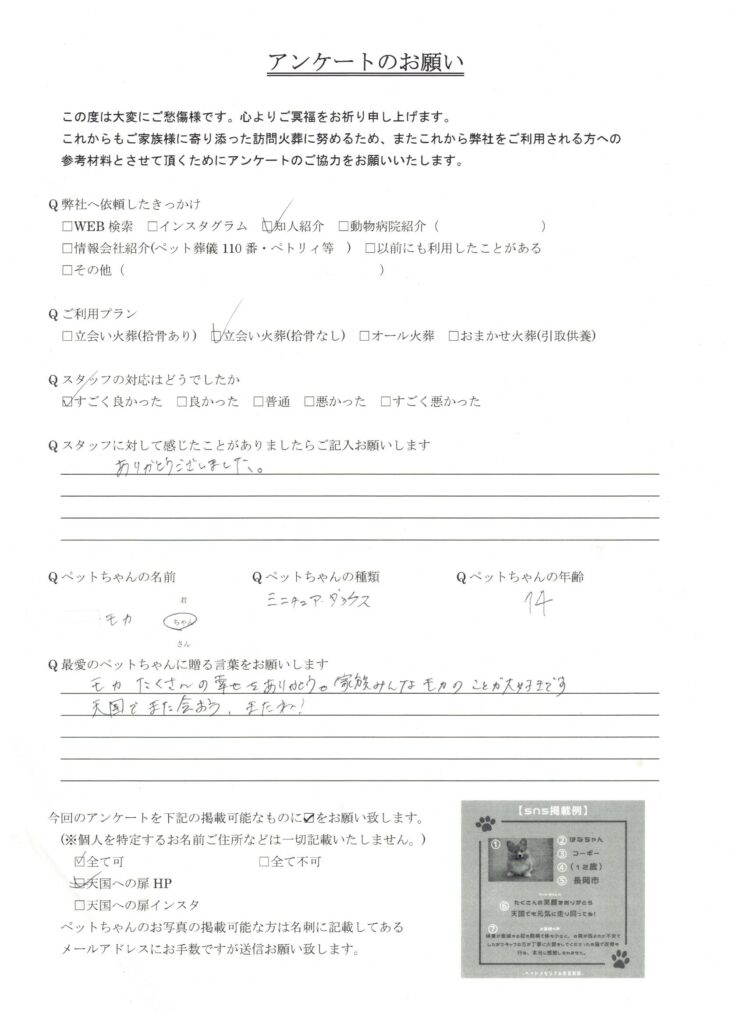 アンケートのお願い
この度は大変にご愁傷様です。心よりご冥福をお祈り申し上げます。
これからもご家族様に寄り添った訪問火葬に努めるため、またこれから弊社をご利用される方への
参考材料とさせて頂くためにアンケートのご協力をお願いいたします。
Q 弊社へ依頼したきっかけ
□WEB 検索 □インスタグラム ☑知人紹介 □動物病院紹介（ ）
□情報会社紹介(ペット葬儀 110 番・ペトリィ等 ) □以前にも利用したことがある
□その他（ ）
Q ご利用プラン
□立会い火葬(拾骨あり) ☑立会い火葬(拾骨なし) □オール火葬 □おまかせ火葬(引取供養)
Q スタッフの対応はどうでしたか
☑すごく良かった □良かった □普通 □悪かった □すごく悪かった
Q スタッフに対して感じたことがありましたらご記入お願いします
ありがとうございました。
Q ペットちゃんの名前 Q ペットちゃんの種類 Q ペットちゃんの年齢
君
モカ ちゃん ミニチュア・ダックス 14
さん
Q 最愛のペットちゃんに贈る言葉をお願いします
モカ たくさんの幸せをありがとう。家族みんなモカのことが大好きです
天国でまた会おう、またね!
今回のアンケートを下記の掲載可能なものに☑をお願い致します。
(※個人を特定するお名前ご住所などは一切記載いたしません。)
☑全て可 □全て不可
☑天国への扉 HP
□天国への扉インスタ
ペットちゃんのお写真の掲載可能な方は名刺に記載してある
メールアドレスにお手数ですが送信お願い致します。
【sns掲載例】
① ② はなちゃん
③ コーギー
④ （12歳）
⑤ 長岡市
⑥ たくさんの笑顔をありがとう
天国でも元気に走り回ってね!
⑦